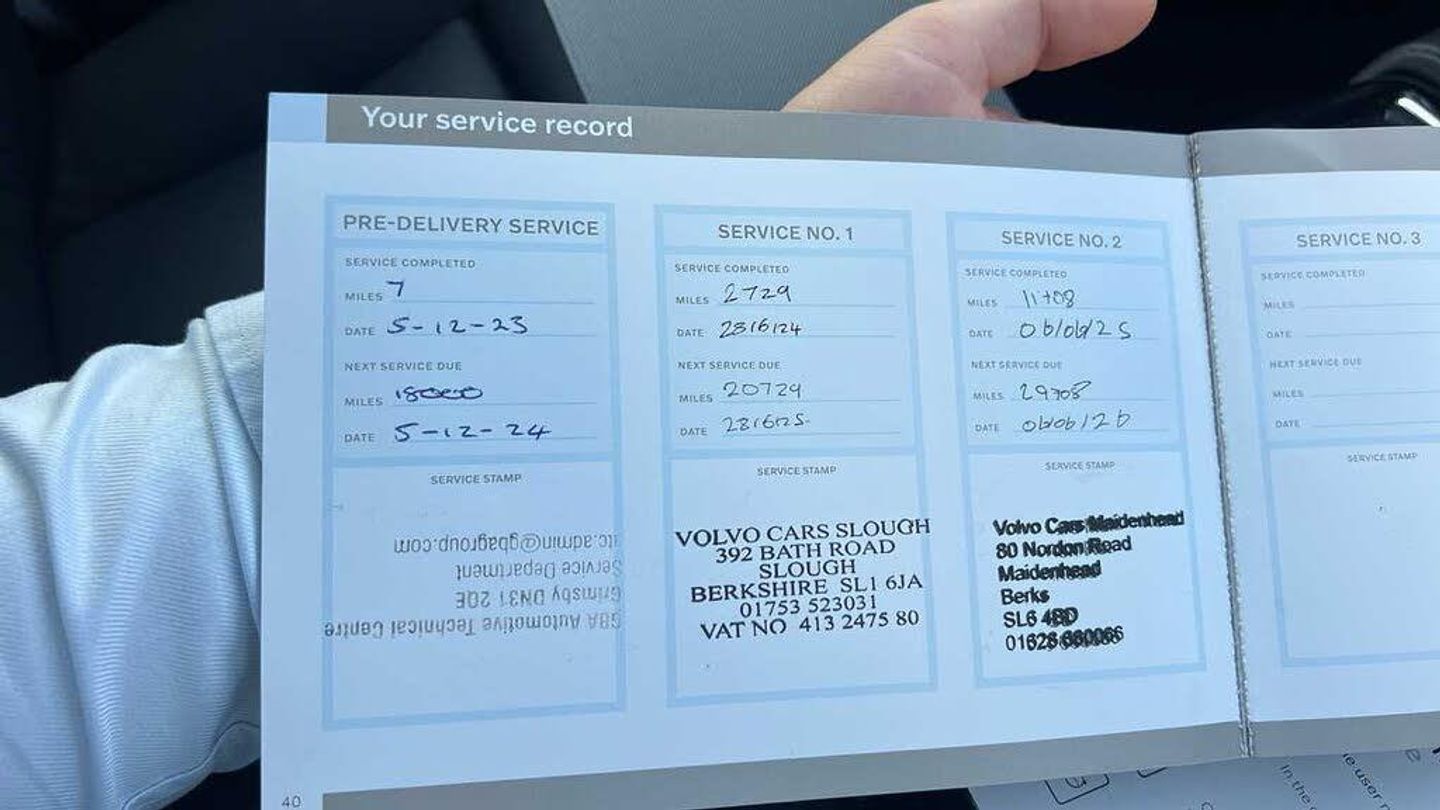 Your service record
PRE-DELIVERY SERVICE
SERVICE COMPLETED
MILES 7
DATE 5-12-23
NEXT SERVICE DUE
MILES 18000
DATE 5-12-24
SERVICE STAMP
GBA Automotive Technical Centre
Grimsby DN31 2QE
Service Department
atc.admin@gbagroup.com
SERVICE NO. 1
SERVICE COMPLETED
MILES 2729
DATE 28/6/24
NEXT SERVICE DUE
MILES 20729
DATE 28/6/25
SERVICE STAMP
VOLVO CARS SLOUGH
392 BATH ROAD
SLOUGH
BERKSHIRE SL1 6JA
01753 523031
VAT NO 413 2475 80
SERVICE NO. 2
SERVICE COMPLETED
MILES 11708
DATE 06/06/25
NEXT SERVICE DUE
MILES 29708
DATE 06/06/26
SERVICE STAMP
Volvo Cars Maidenhead
80 Nordon Road
Maidenhead
Berks
SL6 4BD
01628
SERVICE NO. 3
SERVICE COMPLETED
MILES
DATE
NEXT SERVICE DUE
MILES
DATE
SERVICE STAMP
40
In the
user